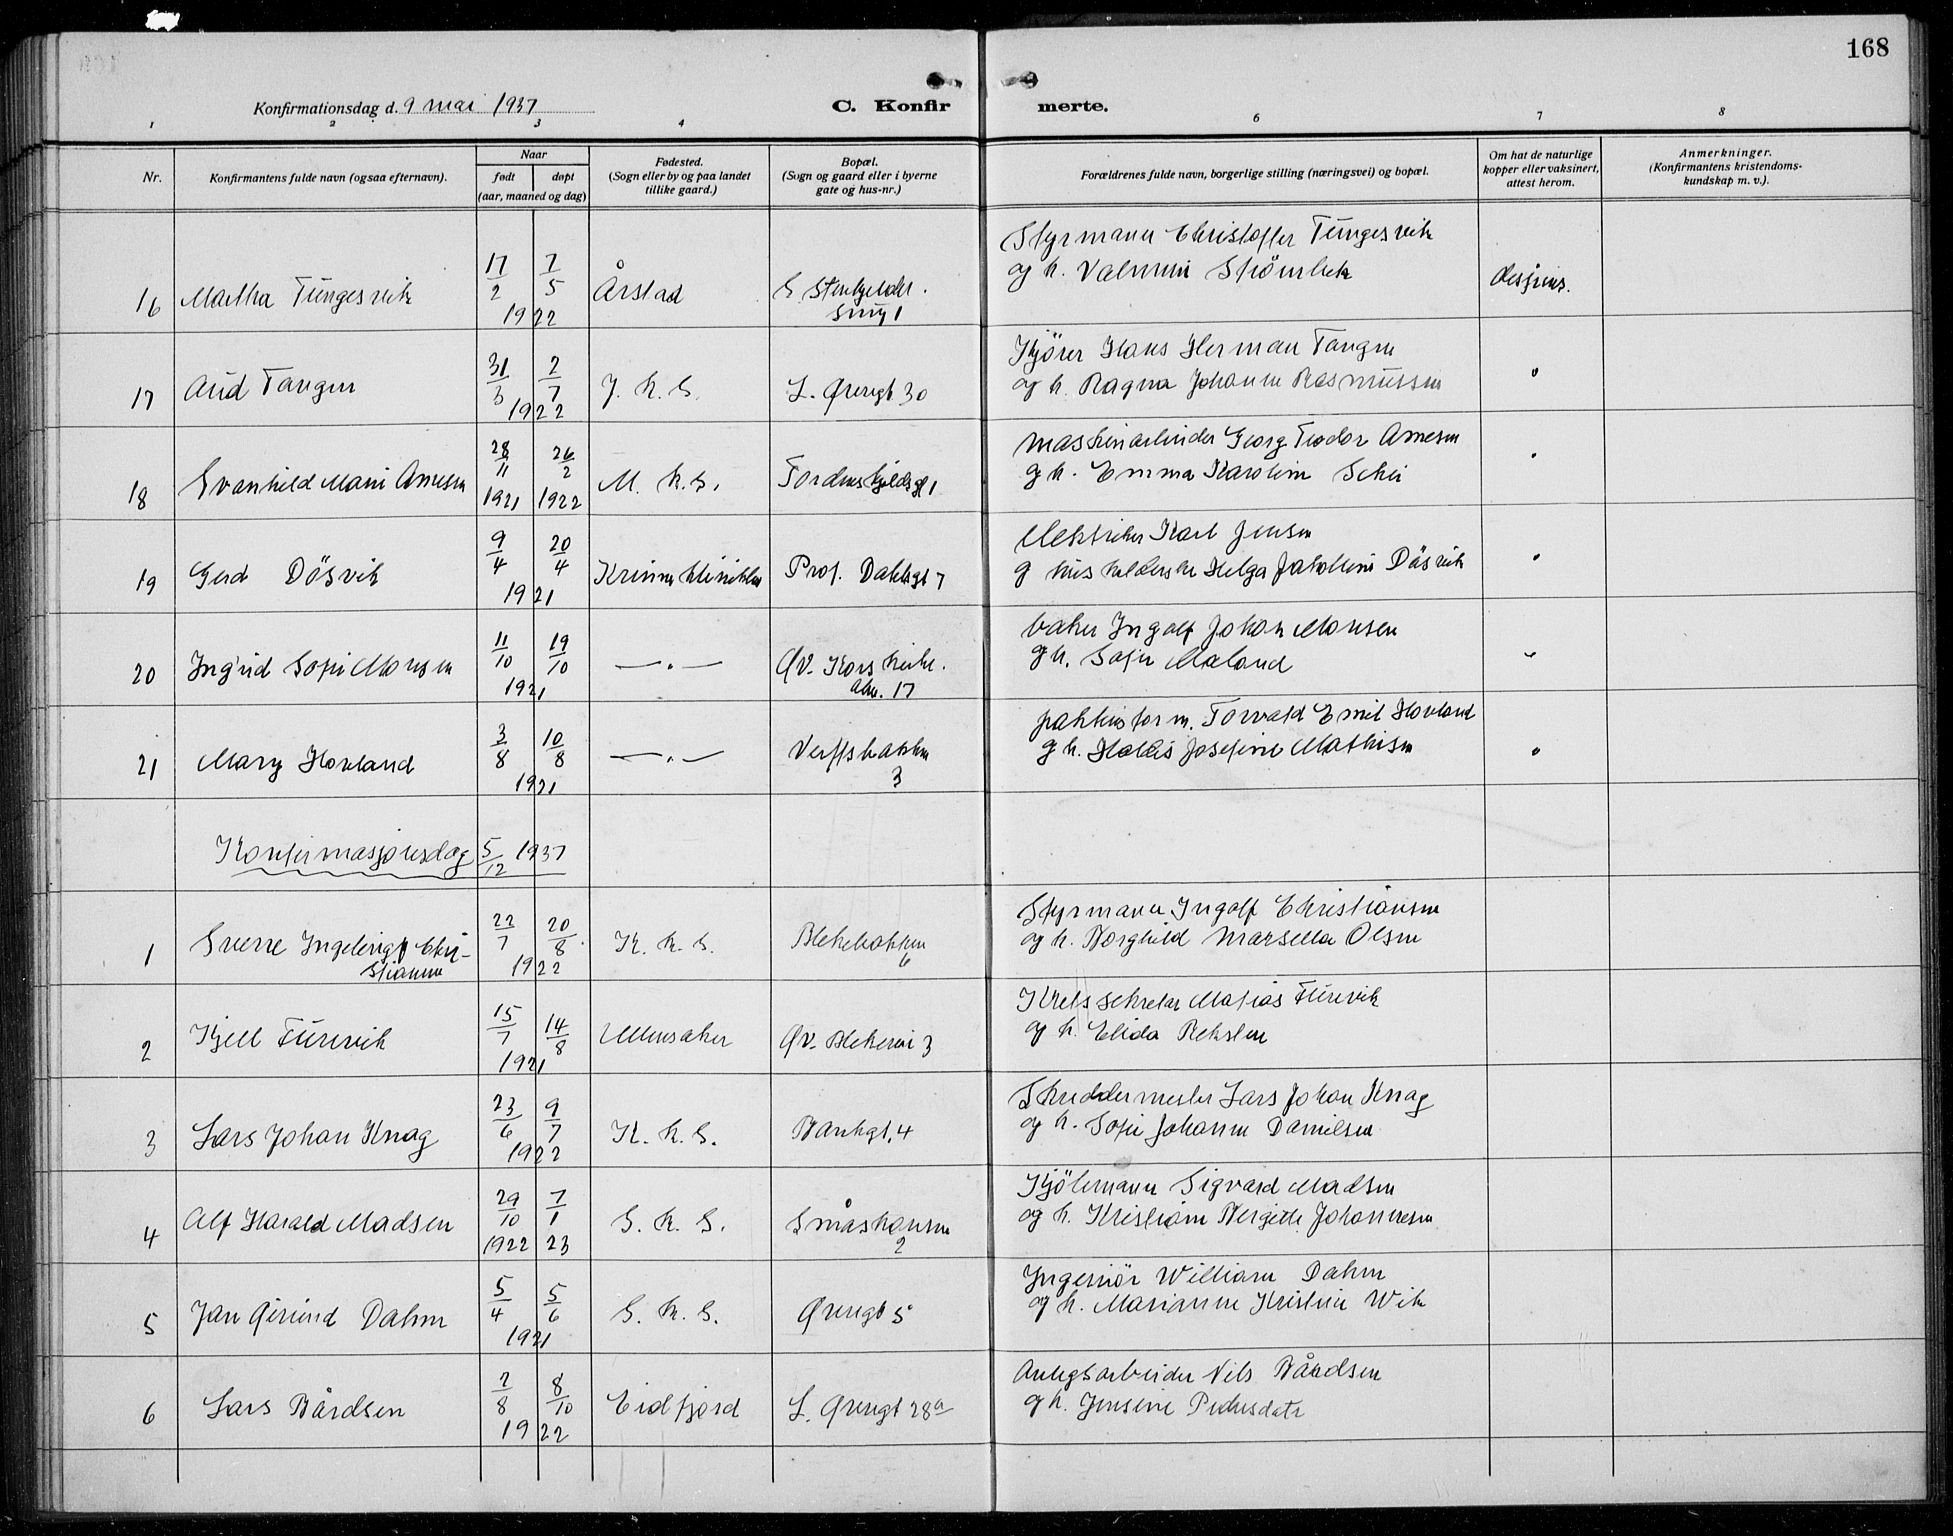 168
Konfirmationsdag d. 9 mai 1937
C. Konfirmerte.
1 2 3 4 6 7 8
Nr.
Konfirmantens fulde navn (ogsaa efternavn).
Naar
født døpt
(aar, maaned og dag)
Fødested.
(Sogn eller by og paa landet
tillike gaard.)
Bopæl.
(Sogn og gaard eller i byerne
gate og hus-nr.)
Forældrenes fulde navn, borgerlige stilling (næringsvei) og bopæl.
Om hat de naturlige
kopper eller vaksinert,
attest herom.
Anmerkninger.
(Konfirmantens kristendoms-
kundskap m. v.).
Styrmann Christoffer Tungesvik
16 Martha Tungesvik 17/2 7/5 1922 Årstad
og h.
smug 1
Kjører Hans Herman Tangen
17 Aud Tangen 31/3 2/7 1922 J. k. s. L. Øvregt 30
og h. Ragna Johanne Rasmussen
maskinarbeider Georg Teodor Arnesen
18 Svanhild Marie Arnesen 28/11 1921 26/2 1922 M. k. s. Tordenskjoldsgt 1
og h. Emma Karoline Schei
elektriker Karl Jensen
19 Gerd Dösvik 9/4 20/4 1921 Kvinneklinikken Prof. Dahlsgt 7
og husholderske Helga Jakobine Dösvik
baker Ingolf Johan Monsen
20 Ingrid Sofie Monsen 11/10 19/10 1921 — " — Øv. Korskirke
alm. 17
og h. Sofie Maland
pakhusform. Torvald Emil Hovland
21 Mary Hovland 3/8 10/8 1921 — " — Verftsbakken
3
og h. Josefine Mathisen
Konfirmasjonsdag 5/12 1937
Styrmann Ingolf Christiansen
1 Sverre Ingolf Chri-
stiansen 22/7 20/8 1922 K. k. s. Blekebakken
6
og h. Borghild Marsella Olsen
Kretssekretær Matias Furevik
2 Kjell Furevik 15/7 14/8 1921 Ullensaker Øv. Blekevei 3
og h. Elida Reksten
Skreddermester Lars Johan Knag
3 Lars Johan Knag 23/6 9/7 1922 K. k. s. Bankgt. 4
og h. Sofie Johanne Danielsen
Kjölemann Sigvard Madsen
4 Alf Harald Madsen 29/10 1922 7/1 23 S. k. s. Småskansen
2
og h. Kristiane Bergitte Johannesen
Ingeniör William Dahm
5 Jan Øivind Dahm 5/4 5/6 1921 S. k. s. Øvregt 5
og h. Marianne Kristine Wik
Anlegsarbeider Nils Bårdsen
6 Lars Bårdsen 2/8 8/10 1922 Eidfjord L. Øvregt 28a
og h. Jensine Pedersdatr